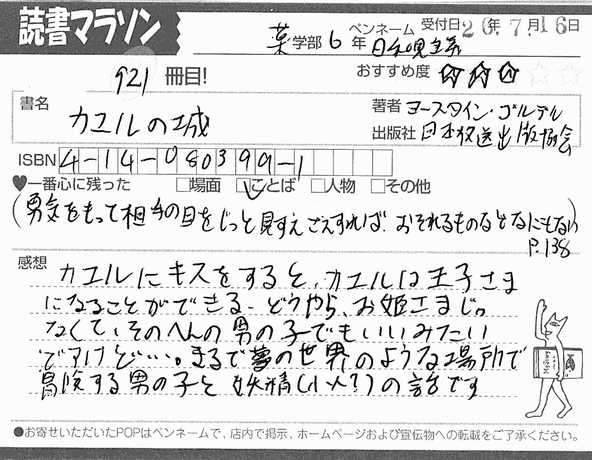 読書マラソン
薬学部 6年 ペンネーム 受付日 26年7月16日
921 冊目!
おすすめ度 ☆☆☆☆☆
書名
カエルの城
著者 ヨースタイン・ゴルデル
出版社 日本放送出版協会
ISBN 4-14-080399-1
♥一番心に残った □場面 □ことば □人物 □その他
(勇気をもって相手の目をじっと見すえさえすれば、おそれるものなどなにもない)
P.138
感想
カエルにキスをすると、カエルは王子さま
になることができる。どうやら、お姫さまじゃ
なくて、そのへんの男の子でもいいみたい
ですけど…。まるで夢の世界のような場所で
冒険する男の子と妖精(小人?)の話です
●お寄せいただいたPOPはペンネームで、店内で掲示、ホームページおよび宣伝物への転載をご了承ください。